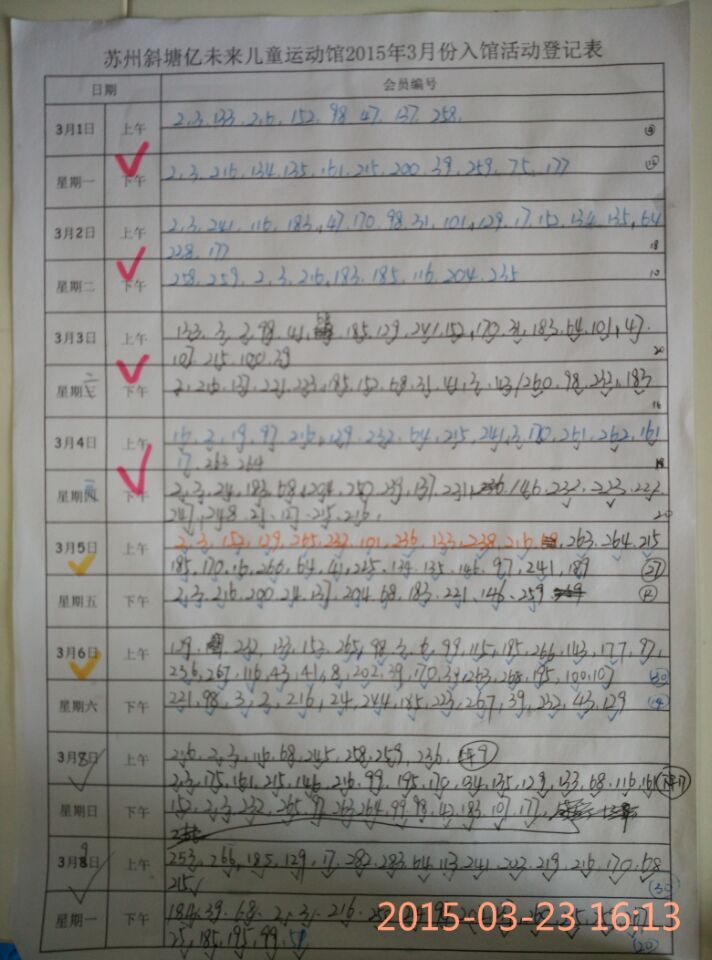 苏州斜塘亿未来儿童运动馆2015年3月份入馆活动登记表
日期 会员编号
3月1日 上午 2.3.133.216.152.98.47.137.258.
星期一 下午 2.3.216.134.135.161.215.200.39.259.75.177
3月2日 上午 2.3.241.116.183.47.170.98.31.101.129.17.152.134.135.64
228.177 18
星期二 下午 258.259.2.3.216.183.185.116.204.235 10
3月3日 上午 133.3.2.98.41. 185.129.241.152.170.31.183.64.101.47.
107.215.100.39 20
星期 下午 2.216.137.221.223.185.152.68.31.41.3.113/260.98.233.183
16
3月4日 上午 16.2.19.97.216.129.232.64.215.241.3.170.261.262.161
17.263.264
星期四 下午 2.3.24.183.68.204.250.39.137.221. 146.232.223.222
247.248.21.127.215.216. 20
3月5日 上午 2.3.152.129.265.232.101.236.133.238.216. 263.264.215
185.170.16.266.64.41.225.134.135.146.97.241.187 27
星期五 下午 2.3.216.200.24.137.204.68.183.221.146.259 12
3月6日 上午 129. 232.133.152.265.98.3.6.99.115.185.266.143.177.97.
236.267.116.43.41.8.202.39.170.39.263.268.195.100.107 30
星期六 下午 221.98.3.2.216.24.244.185.223.267.39.232.43.129 14
3月8日 上午 216.2.3.116.68.245.258.259.236. 上午9
2.3.175.161.215.146.216.99.195.170.134.135.129.133.68.116.161 下午17
星期日 下午 152.2.3.232.265.97.263.264.99.98.43.183.107.177.
3月9日 上午 253.266.185.129.17.282.283.64.113.241.203.219.216.170.68
215. 30
星期一 下午 184.39.68.2.3.216.
25.185.195.99.58 20
2015-03-23 16:13